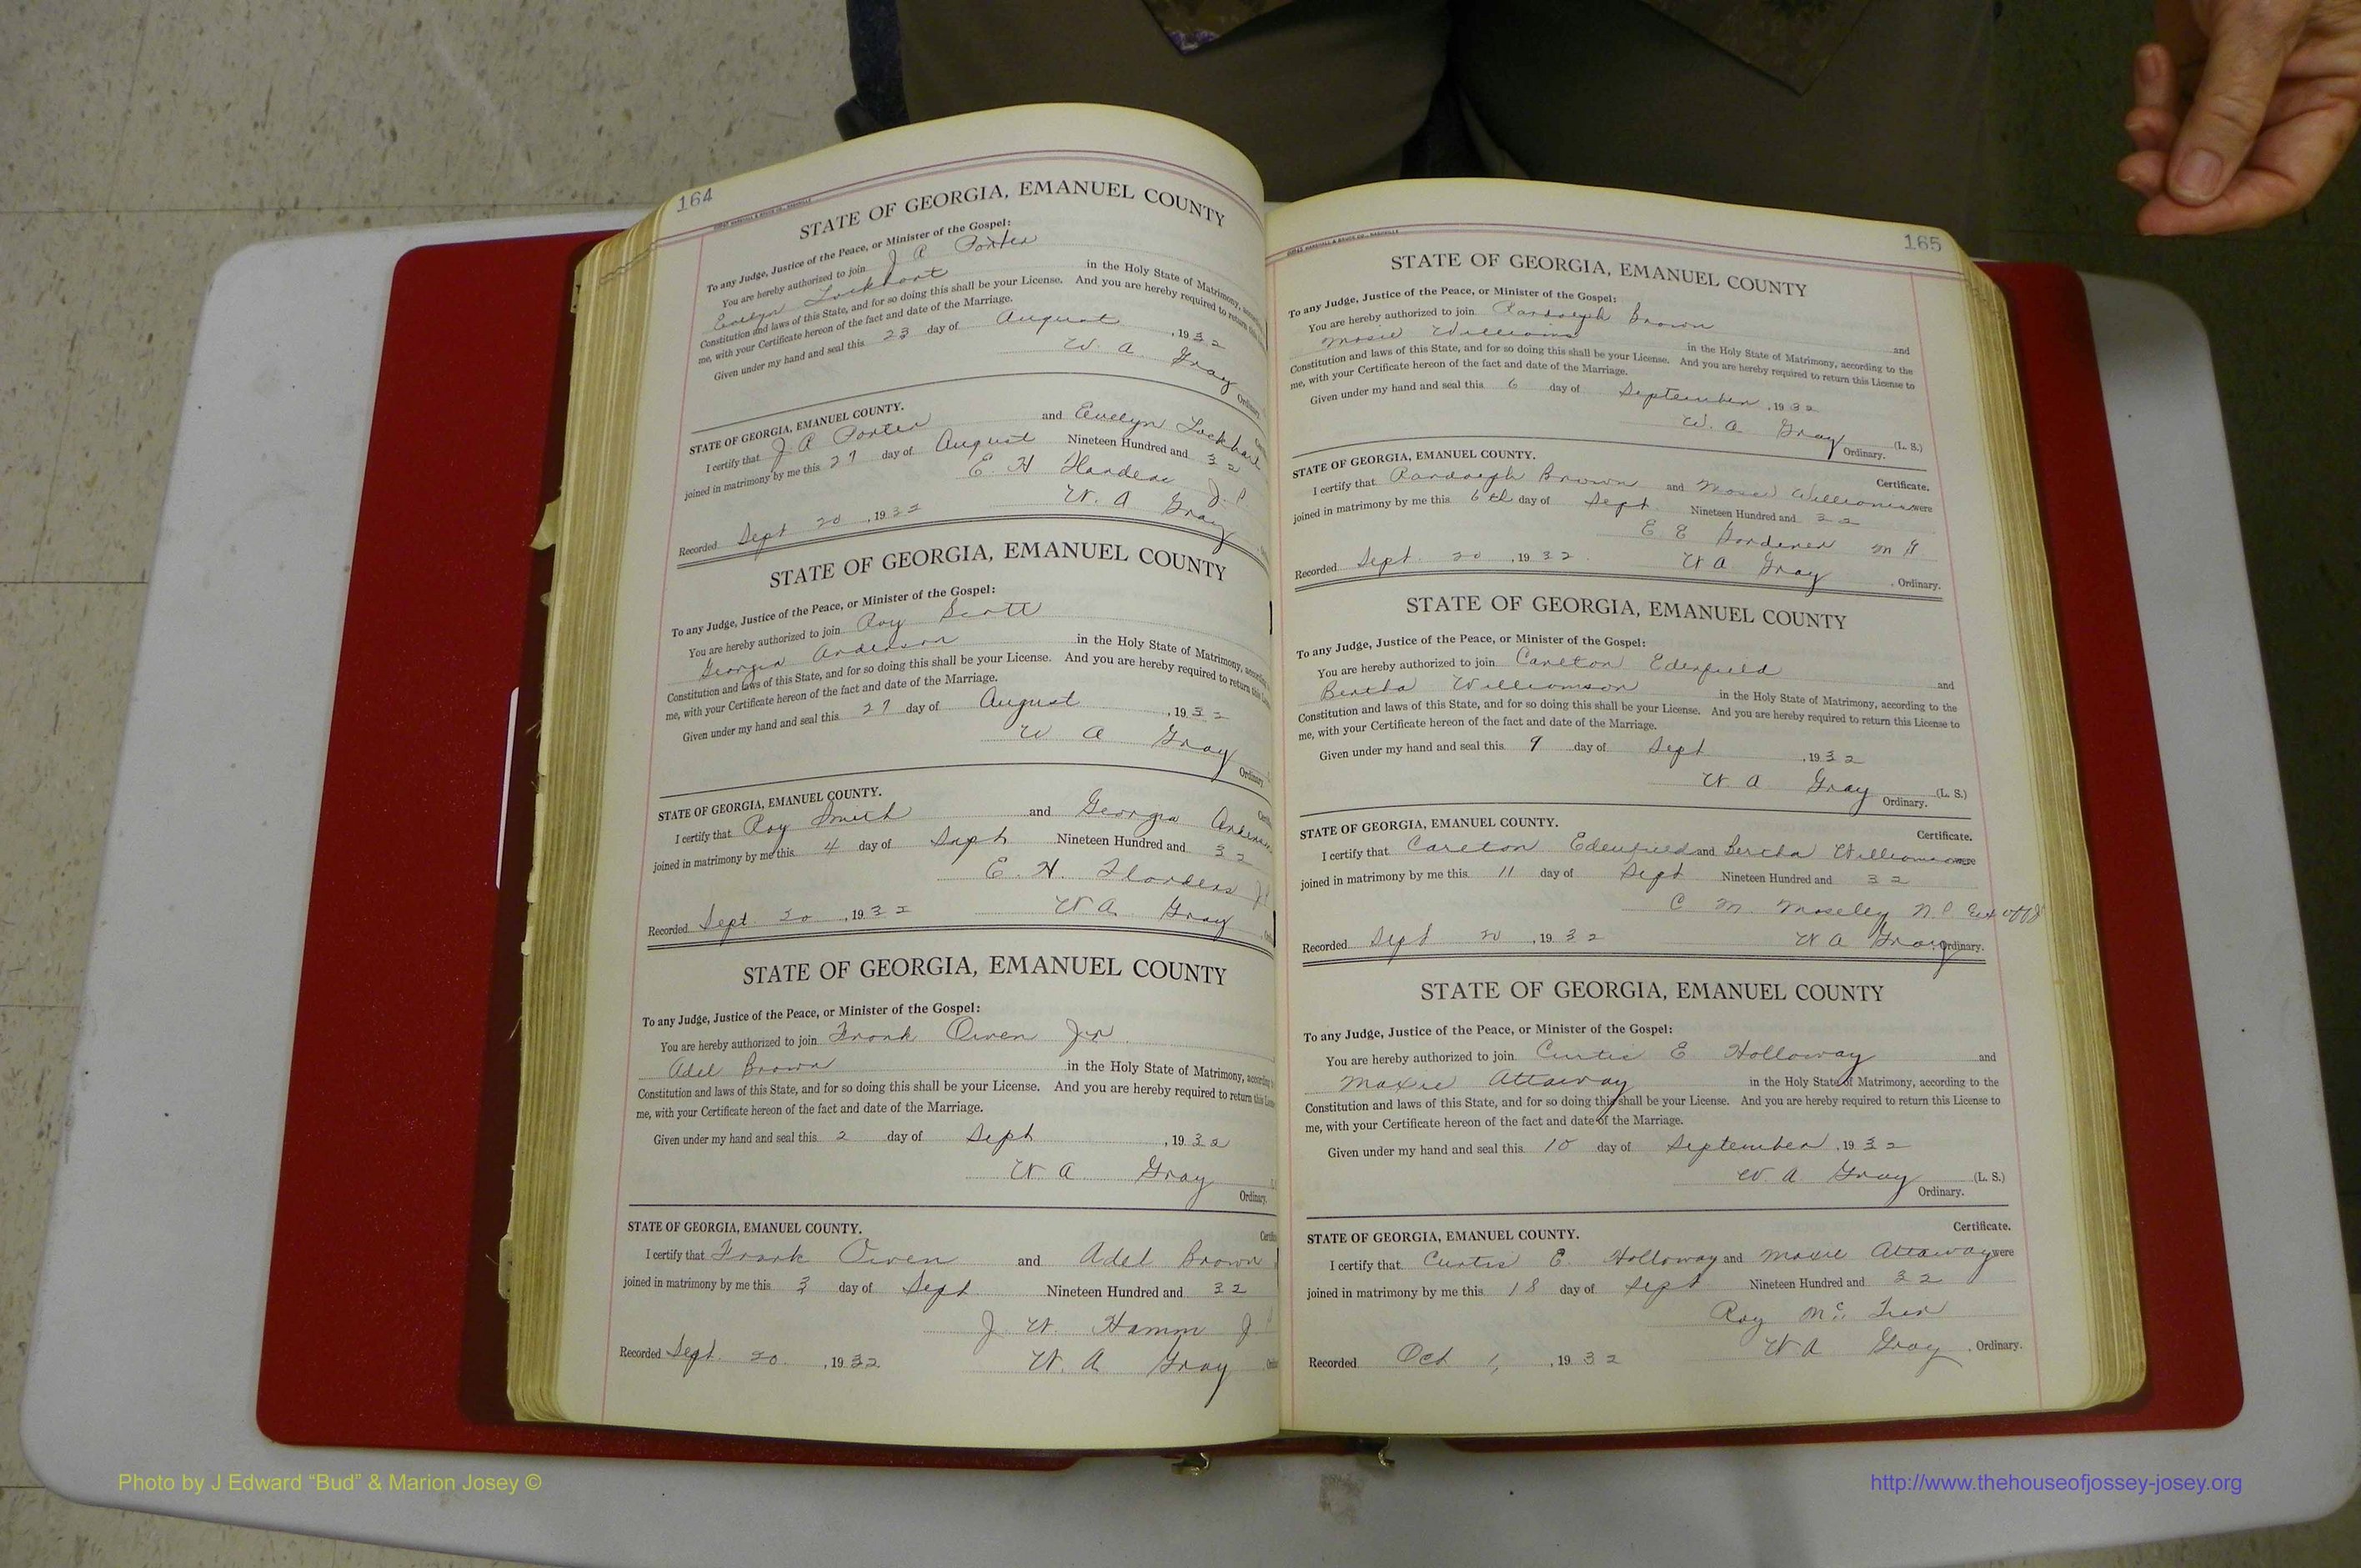 164
STATE OF GEORGIA, EMANUEL COUNTY
To any Judge, Justice of the Peace, or Minister of the Gospel:
You are hereby authorized to join J A Porter
Evelyn Lockhart in the Holy State of Matrimony,
Constitution and laws of this State, and for so doing this shall be your License. And you are hereby required to return this
me, with your Certificate hereon of the fact and date of the Marriage.
Given under my hand and seal this 23 day of August, 1932
W. A. Gray
Ordinary
STATE OF GEORGIA, EMANUEL COUNTY.
I certify that J. A Porter and Evelyn Lockhart
joined in matrimony by me this 27 day of August Nineteen Hundred and 32
E. H J. P.
Recorded Sept 20, 1932 W. A Gray
STATE OF GEORGIA, EMANUEL COUNTY
To any Judge, Justice of the Peace, or Minister of the Gospel:
You are hereby authorized to join Roy Scott
Georgia Anderson in the Holy State of Matrimony,
Constitution and laws of this State, and for so doing this shall be your License. And you are hereby required to return this
me, with your Certificate hereon of the fact and date of the Marriage.
Given under my hand and seal this 27 day of August, 1932
W A Gray
Ordinary
STATE OF GEORGIA, EMANUEL COUNTY.
I certify that Roy Smith and Georgia Anderson
joined in matrimony by me this 4 day of Sept Nineteen Hundred and 32
E. H. Flanders
Recorded Sept. 20, 1932 W A. Gray
STATE OF GEORGIA, EMANUEL COUNTY
To any Judge, Justice of the Peace, or Minister of the Gospel:
You are hereby authorized to join Frank Owen Jr
Adel Brown in the Holy State of Matrimony,
Constitution and laws of this State, and for so doing this shall be your License. And you are hereby required to return this
me, with your Certificate hereon of the fact and date of the Marriage.
Given under my hand and seal this 2 day of Sept, 1932
W A Gray
Ordinary.
STATE OF GEORGIA, EMANUEL COUNTY.
I certify that Frank Owen and Adel Brown
joined in matrimony by me this 3 day of Sept Nineteen Hundred and 32
J W. Hamm J
Recorded Sept. 20., 1932 W. A Gray
165
STATE OF GEORGIA, EMANUEL COUNTY
To any Judge, Justice of the Peace, or Minister of the Gospel:
You are hereby authorized to join Randolph Brown and
Mosie Williams in the Holy State of Matrimony, according to the
Constitution and laws of this State, and for so doing this shall be your License. And you are hereby required to return this License to
me, with your Certificate hereon of the fact and date of the Marriage.
Given under my hand and seal this 6 day of September, 1932
W. A Gray (L. S.)
Ordinary.
STATE OF GEORGIA, EMANUEL COUNTY. Certificate.
I certify that Randolph Brown and Mosie Williams were
joined in matrimony by me this 6th day of Sept. Nineteen Hundred and 32
E E Gardener M G
Recorded Sept. 20, 1932. W A Gray, Ordinary.
STATE OF GEORGIA, EMANUEL COUNTY
To any Judge, Justice of the Peace, or Minister of the Gospel:
You are hereby authorized to join Carlton Edenfield and
Bertha Williamson in the Holy State of Matrimony, according to the
Constitution and laws of this State, and for so doing this shall be your License. And you are hereby required to return this License to
me, with your Certificate hereon of the fact and date of the Marriage.
Given under my hand and seal this 9 day of Sept, 1932
W A Gray (L. S.)
Ordinary.
STATE OF GEORGIA, EMANUEL COUNTY. Certificate.
I certify that Carlton Edenfield and Bertha Williamson were
joined in matrimony by me this 11 day of Sept Nineteen Hundred and 32
C M. Moseley N. P.
Recorded Sept 20, 1932 W A Gray, Ordinary.
STATE OF GEORGIA, EMANUEL COUNTY
To any Judge, Justice of the Peace, or Minister of the Gospel:
You are hereby authorized to join Curtis E Holloway and
Maxie Attaway in the Holy State of Matrimony, according to the
Constitution and laws of this State, and for so doing this shall be your License. And you are hereby required to return this License to
me, with your Certificate hereon of the fact and date of the Marriage.
Given under my hand and seal this 10 day of September, 1932
W. A Gray (L. S.)
Ordinary.
STATE OF GEORGIA, EMANUEL COUNTY. Certificate.
I certify that Curtis E. Holloway and Maxie Attaway were
joined in matrimony by me this 18 day of Sept Nineteen Hundred and 32
Roy Mc
Recorded Oct 1, , 1932 W A Gray, Ordinary.
Photo by J Edward “Bud” & Marion Josey ©
http://www.thehouseofjossey-josey.org